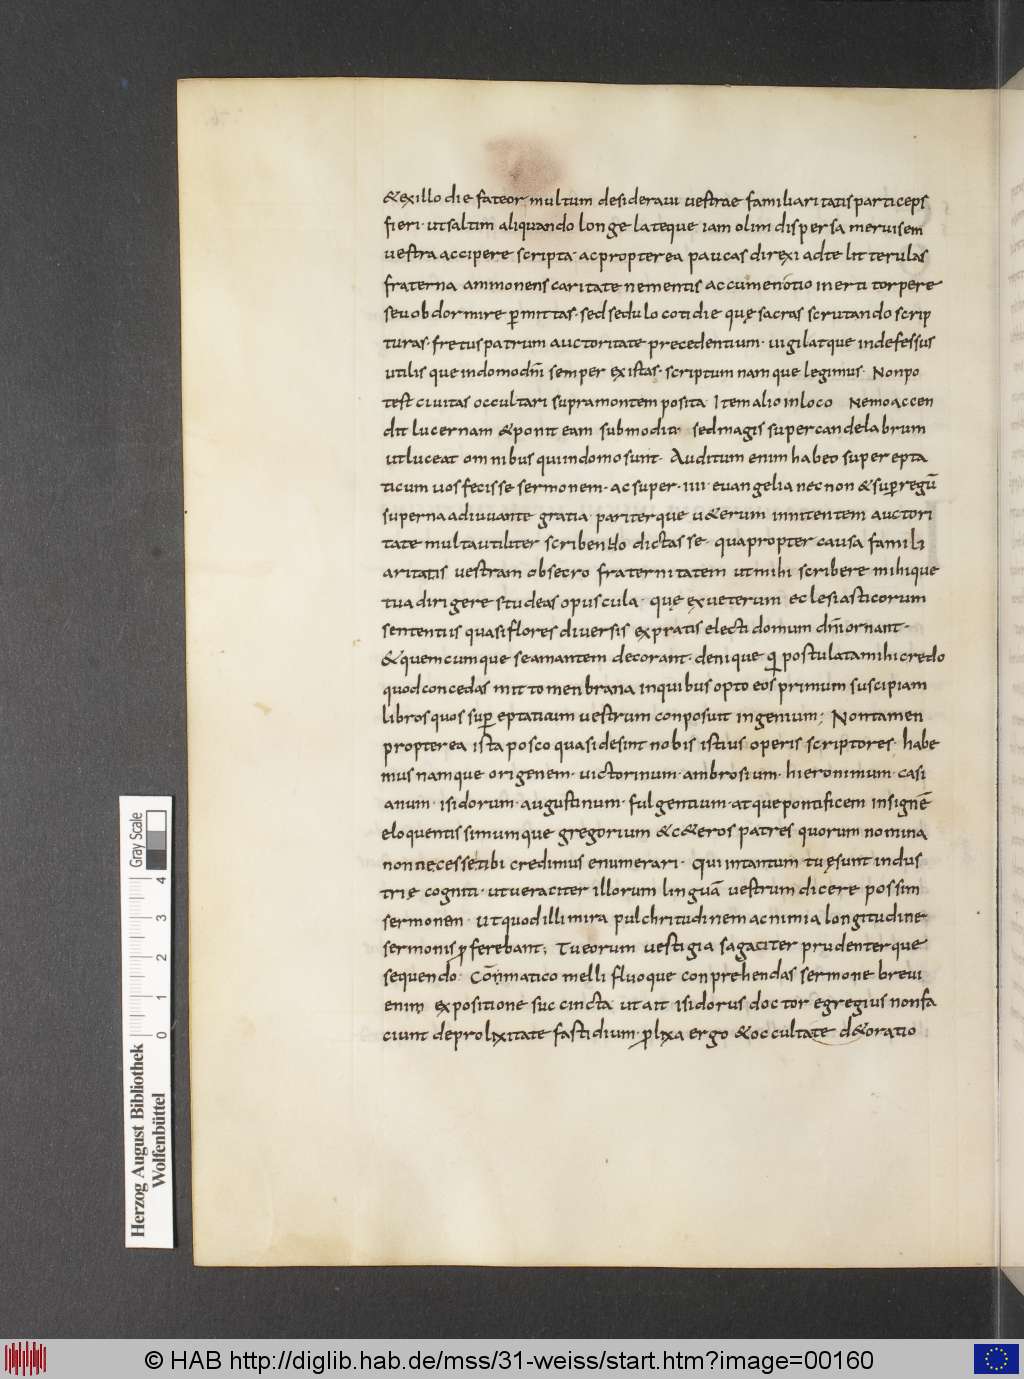 &exillo die fateor multum desideraui uestrae familiaritatis particeps
fieri· utsaltim aliquando longe lateque iam olim dispersa meruisem
uestra accipere scripta· acpropterea paucas direxi adte litterulas
fraterna ammonens caritate nementis accumen otio inerti torpere
seu obdormire p̲mittas· sed sedulo cotidie quę sacras scrutando scrip
turas· fretus patrum auctoritate precedentium· uigilatque indefessus
utilis que indomo dn̄i semper existas· scriptum namque legimus· Nonpo
test ciuitas occultari supramontem posita Item alio inloco Nemo accen
dit lucernam &ponit eam submodio· sed magis super candelabrum
utluceat omnibus quiindomo sunt· Auditum enim habeo super epta
ticum uos fecisse sermonem· ac super· IIII· euangelia necnon &sup̲ regū
superna adiuuante gratia· pariterque u&erum innitentem auctori
tate multa utiliter scribendo dictasse· quapropter causa famili
aritatis uestram obsecro fraternitatem utmihi scribere mihique
tua dirigere studeas opuscula· quę exueterum eclesiasticorum
sententiis quasi flores diuersis expratis electi domum dn̄i ornant·
&quemcumque seamantem decorant· denique q̲ postulatamihi credo
quod concedas mitto menbrana inquibus opto eos primum suscipiam
libros quos sup̲ eptaticum uestrum conposuit ingenium; Nontamen
propterea ista posco quasi desint nobis istius operis scriptores· habe
mus namque origenem· uictorinum· ambrosium· hieronimum· casi
anum· isidorum· augustinum· fulgentium· atque pontificem insignē
eloquentissimumque gregorium &c&eros patres quorum nomina
non necesse tibi credimus enumerari· Qui intantum tuę sunt indus
trię cogniti· utueraciter illorum linguā uestrum dicere possim
sermonen· Utquod illi mira pulchritudinem ac nimia longitudine
sermonis p̲ferebant; Tu eorum uestigia sagaciter prudenterque
sequendo· Cōmmatico melli fluoque conprehendas sermone breui
enim expositione succincta utait isidorus doctor egregius nonfa
ciunt deprolixitate fastidium· p̲lixa ergo &occultate d&oratio
Gray Scale
4
3
2
1
0
Herzog August Bibliothek
Wolfenbüttel
© HAB http://diglib.hab.de/mss/31-weiss/start.htm?image=00160